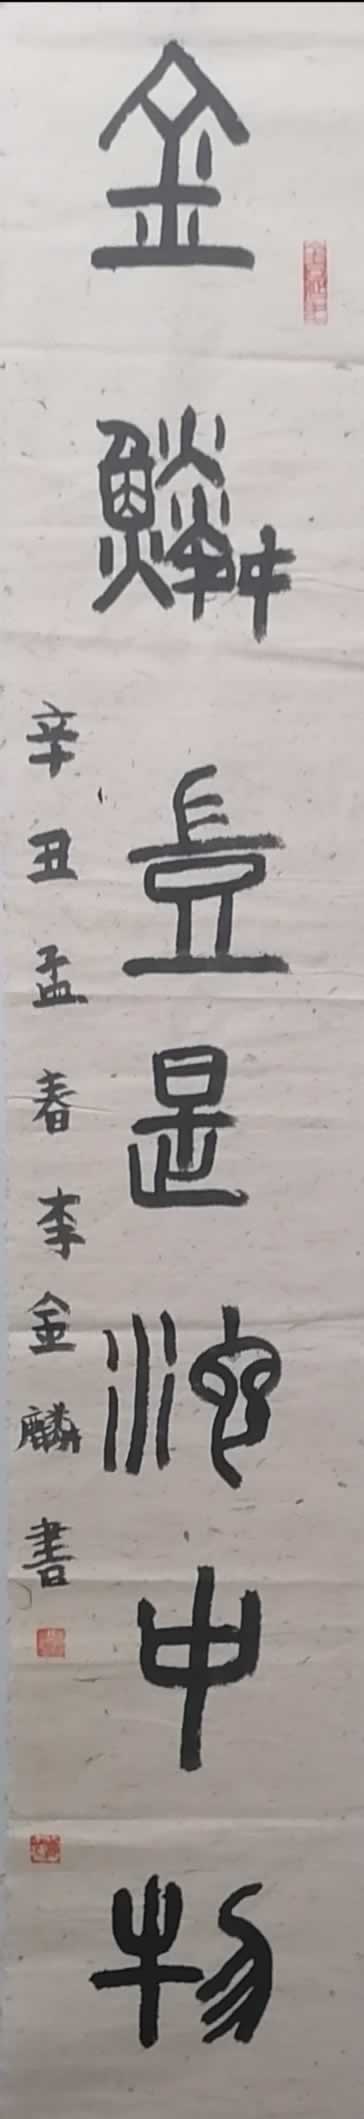 金鱗豈是池中物
辛丑孟春李金麟書